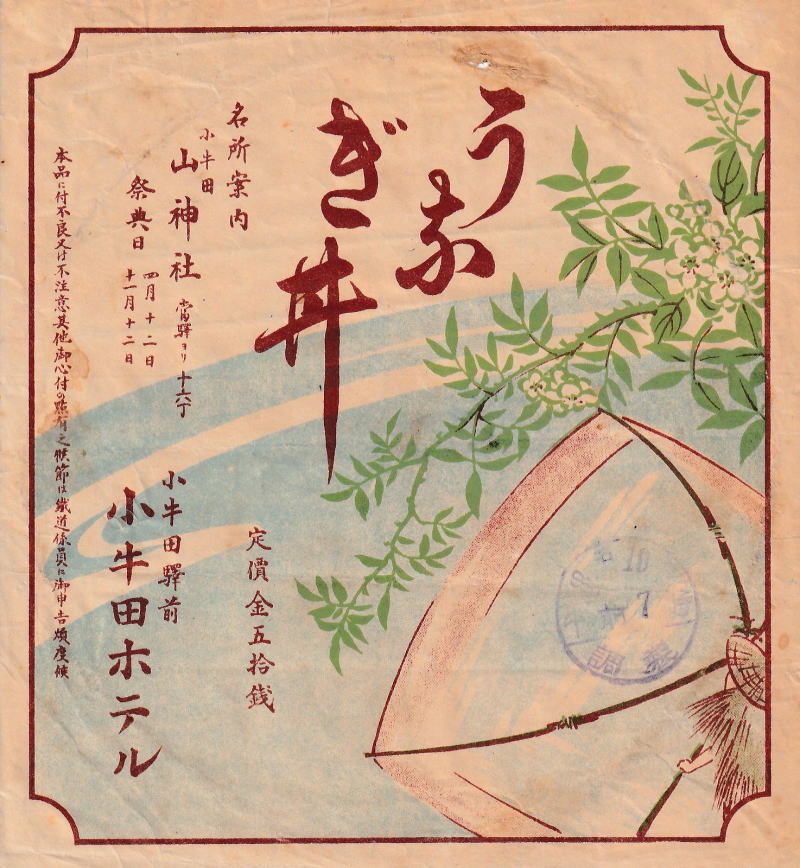 うなぎ丼
名所案内
小牛田
山神社
當驛ヨリ十六丁
祭典日
四月十二日
十一月十二日
本品に付不良又は不注意其他御心付の點有之候節は鐵道係員に御申告煩度候
定價金五拾錢
小牛田驛前
小牛田ホテル
10
7
午前
調製